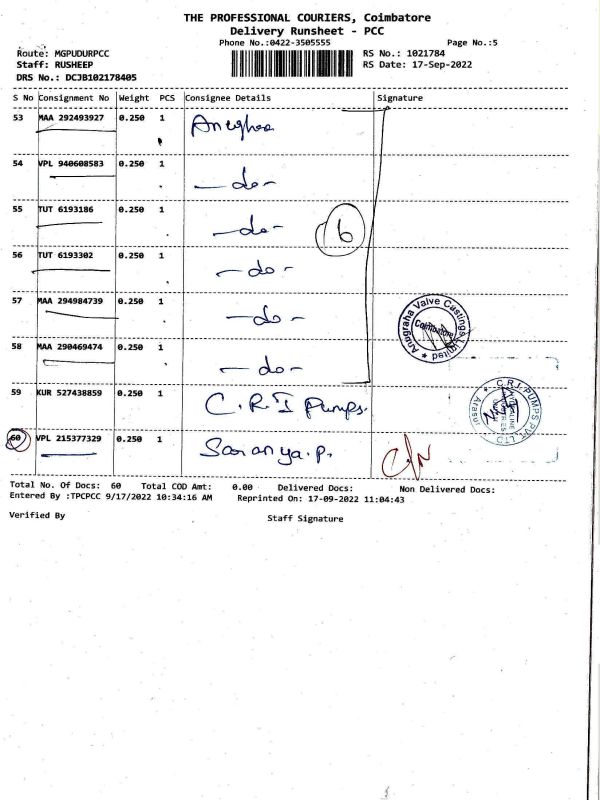 THE PROFESSIONAL COURIERS, Coimbatore
Delivery Runsheet - PCC
Phone No.:0422-3505555 Page No.:5
Route: MGPUDURPCC RS No.: 1021784
Staff: RUSHEEP RS Date: 17-Sep-2022
DRS No.: DCJB102178405
S No Consignment No Weight PCS Consignee Details Signature
53 MAA 292493927 0.250 1
54 VPL 940608583 0.250 1 -do-
55 TUT 6193186 0.250 1 -do-
6
56 TUT 6193302 0.250 1 -do-
57 MAA 294984739 0.250 1 -do-
Anugraha Valve Castings Limited
Coimbatore
58 MAA 290469474 0.250 1 -do-
59 KUR 527438859 0.250 1 C.R.I Pumps.
C.R.I. PUMPS PVT. LTD
60 VPL 215377329 0.250 1 Saranya.P.
Total No. Of Docs: 60 Total COD Amt: 0.00 Delivered Docs: Non Delivered Docs:
Entered By :TPCPCC 9/17/2022 10:34:16 AM Reprinted On: 17-09-2022 11:04:43
Verified By Staff Signature